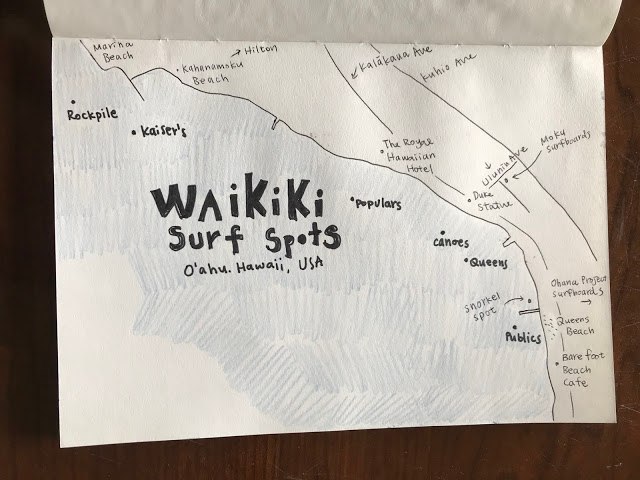 Marina
Beach
Kahanamoku
Beach
→ Hilton
Kalākaua Ave
Kuhio Ave
Rockpile
Kaiser's
The Royal
Hawaiian
Hotel
Uluniu Ave
Moku
surfboards
Duke
Statue
WAiKiKi
Surf Spots
O'ahu. Hawaii, USA
Populars
canoes
Queens
snorkel
spot
Publics
Ohana Project
surfboards
→
Queens
Beach
Barefoot
Beach
Cafe